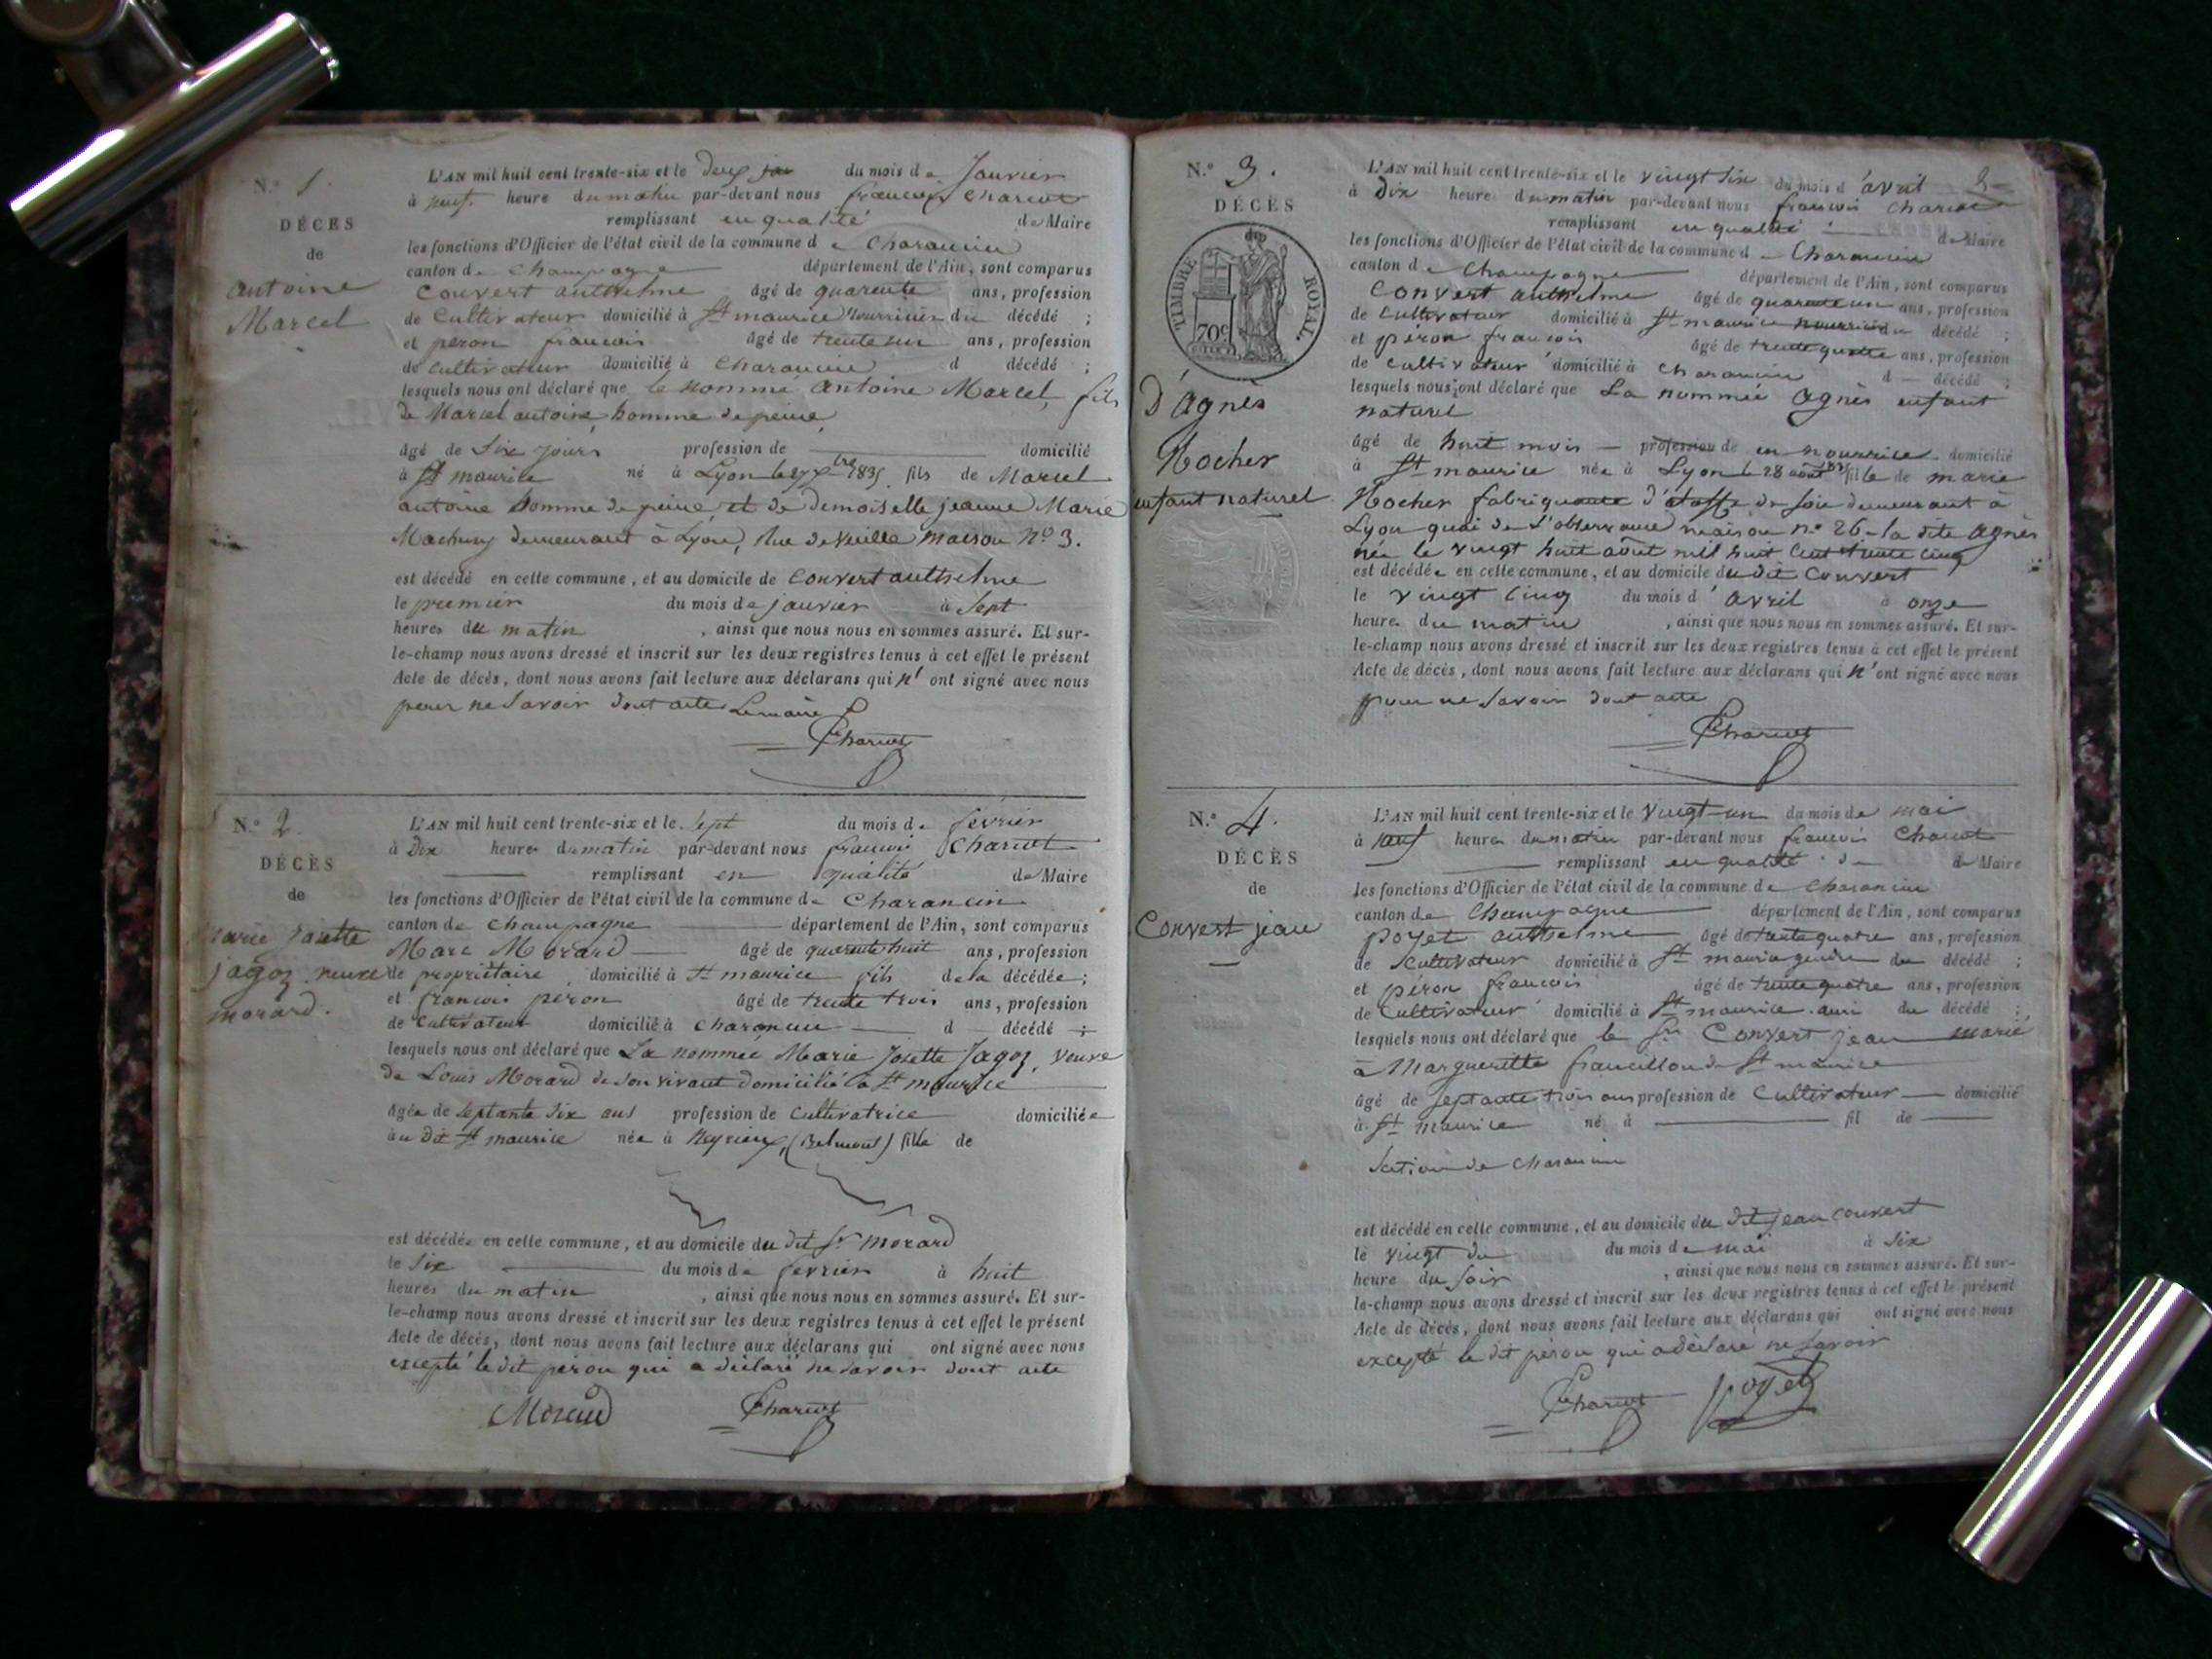 N.º 1.
DÉCÈS
de
antoine
Marcel
L'AN mil huit cent trente-six et le deux du mois de Janvier
à neuf heure du matin par-devant nous francois Chariot
remplissant en qualité de Maire
les fonctions d'Officier de l'état civil de la commune de Charancin
canton de Champagne département de l'Ain, sont comparus
Convert anthelme âgé de quarente ans, profession
de Cultivateur domicilié à St maurice nourricier du décédé ;
et peron francois âgé de trente ans, profession
de Cultivateur domicilié à Charancin d décédé ;
lesquels nous ont déclaré que le nommé Antoine Marcel, fils
de Marcel antoine, homme de peine,
âgé de Six jours profession de domicilié
à St maurice né à Lyon le 27 Xbre 1835 fils de Marcel
antoine homme de peine et de demoiselle jeanne Marie
demeurant à Lyon, Rue de vieille maison nº 3.
est décédé en cette commune, et au domicile de Convert anthelme
le premier du mois de janvier à Sept
heures du matin , ainsi que nous nous en sommes assuré. Et sur-
le-champ nous avons dressé et inscrit sur les deux registres tenus à cet effet le présent
Acte de décès, dont nous avons fait lecture aux déclarans qui n' ont signé avec nous
pour ne Savoir dont acte Le maire
Chariot
N.º 2.
DÉCÈS
de
Marie Josette
jagoz veuve
morard.
L'AN mil huit cent trente-six et le Sept du mois de fevrier
à Dix heures du matin par-devant nous francois Chariot
remplissant en qualité de Maire
les fonctions d'Officier de l'état civil de la commune de Charancin
canton de Champagne département de l'Ain, sont comparus
Marc Morard âgé de quarente huit ans, profession
de propriétaire domicilié à St maurice fils de la décédée ;
et francois péron âgé de trente trois ans, profession
de Cultivateur domicilié à charancin d décédé ;
lesquels nous ont déclaré que La nommée Marie Josette Jagoz, veuve
de Louis Morard de son vivant domicilié à St maurice
âgée de septante six ans profession de Cultivatrice domiciliée
au dit St maurice née à (Belmont) fille de
est décédée en cette commune, et au domicile du dit Sr morard
le Six du mois de fevrier à huit
heures du matin , ainsi que nous nous en sommes assuré. Et sur-
le-champ nous avons dressé et inscrit sur les deux registres tenus à cet effet le présent
Acte de décès, dont nous avons fait lecture aux déclarans qui ont signé avec nous
excepté le dit péron qui a déclaré ne savoir dont acte
Morard Chariot
N.º 3.
DÉCÈS
TIMBRE ROYAL.
70c
d'Agnès
Rocher
enfant naturel
L'AN mil huit cent trente-six et le vingt six du mois d'avril
à Dix heure du matin par-devant nous francois Chariot
remplissant en qualité de Maire
les fonctions d'Officier de l'état civil de la commune d Charancin
canton de Champagne département de l'Ain, sont comparus
Convert anthelme âgé de quarante un ans, profession
de Cultivateur domicilié à St maurice nourricier du décédé ;
et péron francois âgé de trente quatre ans, profession
de cultivateur domicilié à Charancin d décédé ;
lesquels nous ont déclaré que La nommée Agnès enfant
naturel
âgé de huit mois profession de en nourrice domicilié
à St maurice née à Lyon le 28 août fille de marie
Rocher fabriquante d'étoffe de Soie demeurant à
Lyon quai de l'observance maison nº 26 - la dite Agnès
née le vingt huit août mil huit cent trente cinq
est décédée en cette commune, et au domicile du dit Convert
le vingt cinq du mois d'avril à onze
heure du matin , ainsi que nous nous en sommes assuré. Et sur-
le-champ nous avons dressé et inscrit sur les deux registres tenus à cet effet le présent
Acte de décès, dont nous avons fait lecture aux déclarans qui n' ont signé avec nous
pour ne Savoir dont acte
Chariot
N.º 4.
DÉCÈS
de
Convert jean
L'AN mil huit cent trente-six et le Vingt-un du mois de mai
à neuf heures du matin par-devant nous francois Chariot
remplissant en qualité de Maire
les fonctions d'Officier de l'état civil de la commune de Charancin
canton de Champagne département de l'Ain, sont comparus
poyet anthelme âgé de trente quatre ans, profession
de Cultivateur domicilié à St maurice gendre du décédé ;
et peron francois âgé de trente quatre ans, profession
de Cultivateur domicilié à St maurice ami du décédé ;
lesquels nous ont déclaré que le Sr Convert jean marié
à Marguerite francillon de St maurice
âgé de septante trois ans profession de Cultivateur domicilié
à St maurice né à fil de
Section de charancin
est décédé en cette commune, et au domicile du dit jean convert
le vingt du du mois de mai à Six
heure du Soir , ainsi que nous nous en sommes assuré. Et sur-
le-champ nous avons dressé et inscrit sur les deux registres tenus à cet effet le présent
Acte de décès, dont nous avons fait lecture aux déclarans qui ont signé avec nous
excepté le dit péron qui a déclaré ne Savoir
Chariot poyet